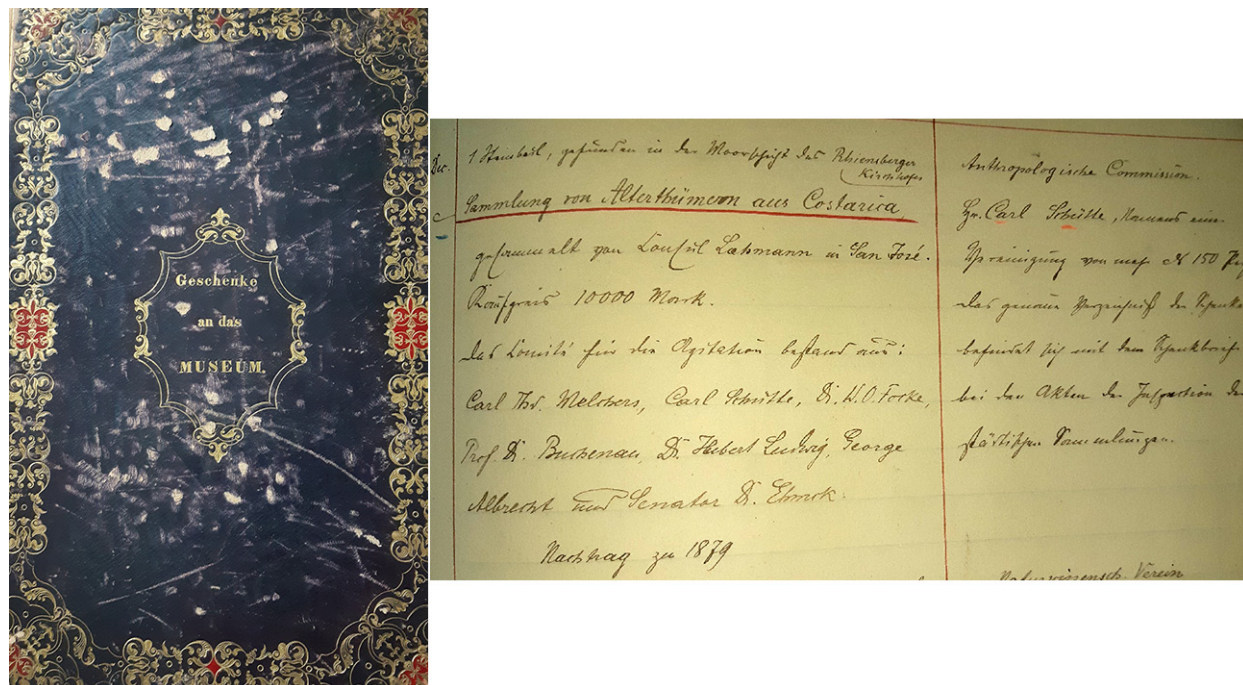 Geschenke
an das
MUSEUM.
Dec.
1 Steinbeil, gefunden in der Moorschicht des Rhiensberger
Kirchhofes
Anthropologische Commission.
Sammlung von Alterthümern aus Costarica,
gesammelt von Consul Lahmann in San José.
Kaufpreis 10000 Mark.
Das Comité für die Agitation bestand aus:
Carl Thd. Melchers, Carl Schütte, Dr. W. O. Focke,
Prof. Dr. Buchenau, Dr. Hubert Ludwig, George
Albrecht und Senator Dr. Ehmck.
Nachtrag zu 1879
Hr. Carl Schütte, Namens ein-
Vereinigung von mehr als 150
Das genaue Verzeichniß der Schenke
befindet sich mit dem Schenkbriefe
bei den Akten der Inspection der
städtischen Sammlungen.
Naturwissensch. Verein